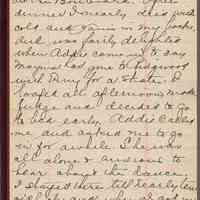 dinner I nearly died with
cold and
and was fairly delighted
when Addie came in to say
Maynard had gone to Ridgewood
with Perry for a skate. I
loafed all afternoon made
fudge and decided to go
to bed early. Addie called
me and asked me to go
in for awhile. She was
all alone & anxious to
hear about the dance.
I stayed there till nearly ten